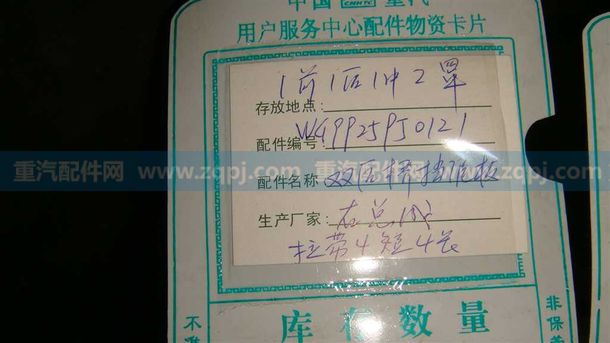 中国 CNHTC 重汽
用户服务中心配件物资卡片
1前1后1中2罩
存放地点:
配件编号: WG9925950121
重汽配件网 www.zqpj.com 重汽配件网 www.zqpj.com
配件名称: 双后桥挡泥板
生产厂家: 右总成
拉带4短4长
库存数量
不准
非保养